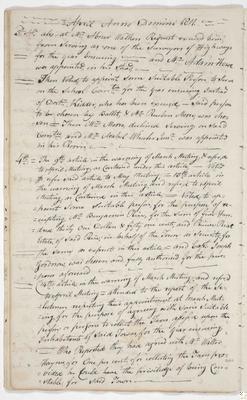 April Anno Domini 1811.
at Mr. Stow Walker Request excused him
from Serving as one of the Surveyors of Highways
for the year Ensuing and Mr. Adam How
was appointed in his Stead
Then Voted to appoint some Suitable Person to Serve
on the School Comtee for the year ensuing Instead
of Doctr. Kidder, who has been excused Said person
to be chosen by Ballot & Mr. Reuben Moore was cho-
sen Then Mr. Moore declined Serving on said
Comtee and Mr. was appointed
in his Room
The 9th article in the warning of March Meeting & refered
to April Meeting as Contained under this article
refer said article to May Meeting 13th article in
the warning of March Meeting and referd to April
Meeting as Contained in this article Voted to ap-
point some Suitable person for the purpose of re-
ceipting Mr. Benjamin for the Sum of five hun-
dred thirty One Dollars & fifty one cents and
Estate, of Said in behalf of the Town as Security for
the Same as expressed in this article and Capt. Joseph
was chosen and fully authorised for the pur-
pose aforesaid
14th article in the warning of March Meeting and referd
to April Meeting attended to the report of the Se-
lectmen respecting their appointment at March Meet-
ing for the purpose of agreeing with some Suitable
person or persons to collect the Taxes upon the
Inhabitants of Said Town for the year ensuing
Who Reported they have agreed with Mr.
Haynes for One per cent for collecting the Taxes pro-
vided he could have the priviledge of being Con-
stable for Said Town